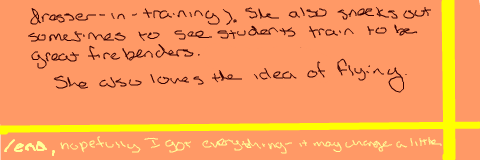 dresser-in-training). She also sneaks out
sometimes to see students train to be
great firebenders.
She also loves the idea of flying.
/end, hopefully I got everything- it may change a little